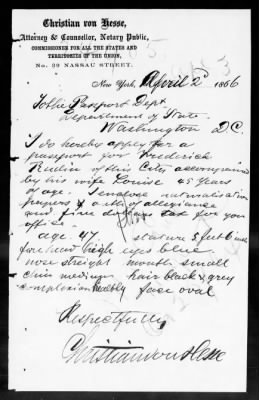 Christian von Hesse,
Attorney & Counsellor, Notary Public,
COMMISSIONER FOR ALL THE STATES AND
TERRITORIES OF THE UNION.
No. 39 NASSAU STREET.
New York, April 2d 1866
To the Passport Dept.
Department of State
Washington D C.
I do hereby apply for a
passport for Frederick
of this City accompanied
by his wife Louise 45 years
of age. I enclose naturalisation
papers & oath of allegiance
and five dollars tax for your
office
age 47 stature 5 feet 6 inch
forehead high eyes blue
nose straight mouth small
chin medium hair black & grey
complexion healthy face oval
Respectfully
Christian von Hesse